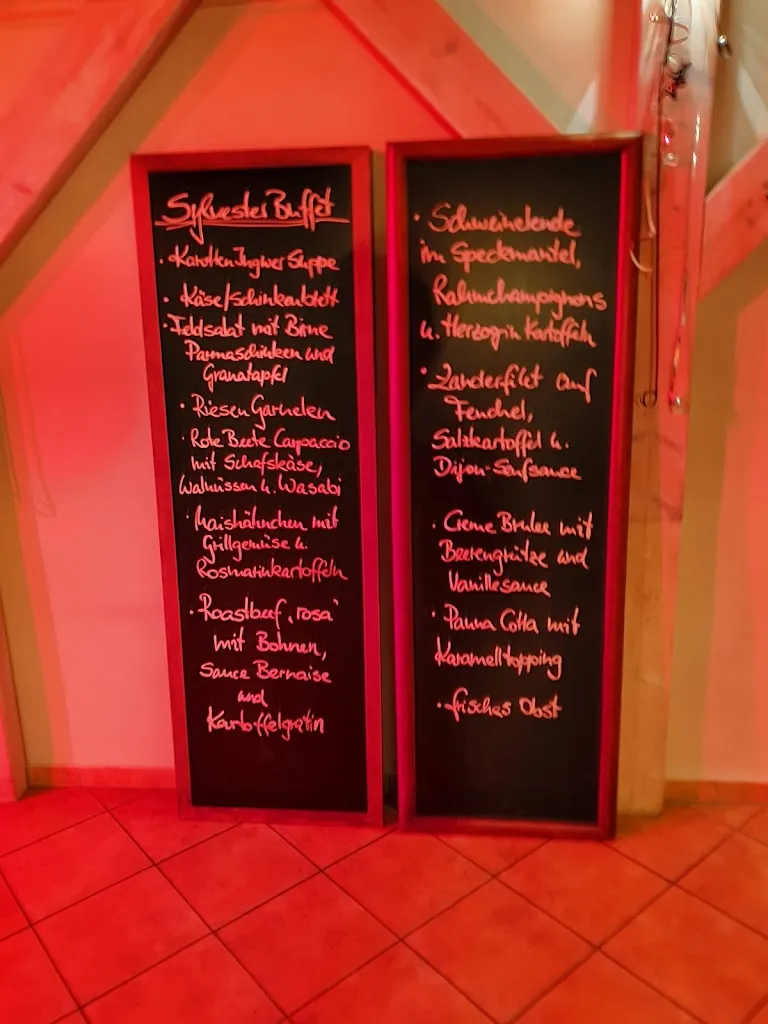 Sylvester Buffet
• Karotten Ingwer Suppe
• Käse/Schinkenbrett
• Feldsalat mit Birne
Parmaschinken und
Granatapfel
• Riesen Garnelen
• Rote Beete Carpaccio
mit Schafskäse,
Walnüssen u. Wasabi
• Maishähnchen mit
Grillgemüse u.
Rosmarinkartoffeln
• Roastbeef „rosa"
mit Bohnen,
Sauce Bernaise
und
Kartoffelgratin
• Schweinelende
im Speckmantel,
Rahmchampignons
u. Herzogin Kartoffeln
• Zanderfilet auf
Fenchel,
Salzkartoffel u.
Dijon-Senfsauce
• Creme Brulee mit
Beerengrütze und
Vanillesauce
• Panna Cotta mit
Karamelltopping
• frisches Obst